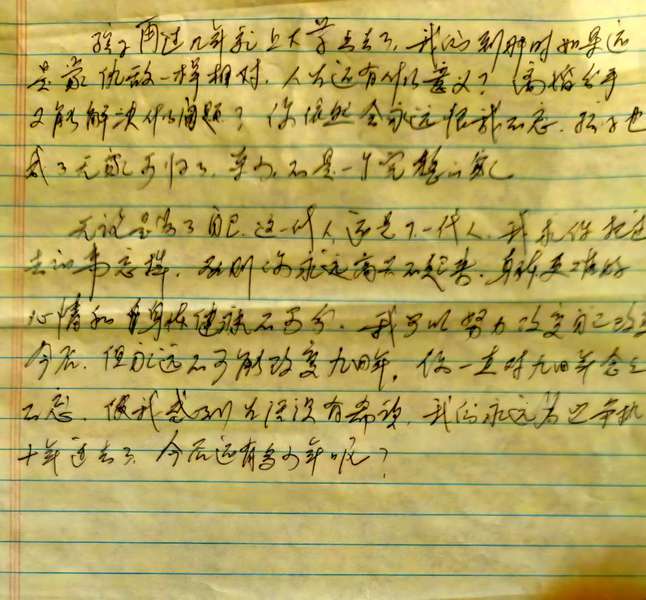 孩子再过几年就上大学去了,我们到那时如果还
是像仇敌一样相对,人生还有什么意义?离婚分手
又能解决什么问题?你依然会永远恨我不忘,孩子也
成了无家可归了,至少,不是一个完整的家
无论是为了自己,这一代人还是下一代人,我求你把过
去的事忘掉,否则你永远高兴不起来,身体更难好
心情和身体健康不可分,我可以努力改变自己改变
今后,但永远不可能改变九四年,你一直对九四年念念
不忘,使我感到生活没有希望,我们永远为这争执
十年过去了,今后还有多少年呢?